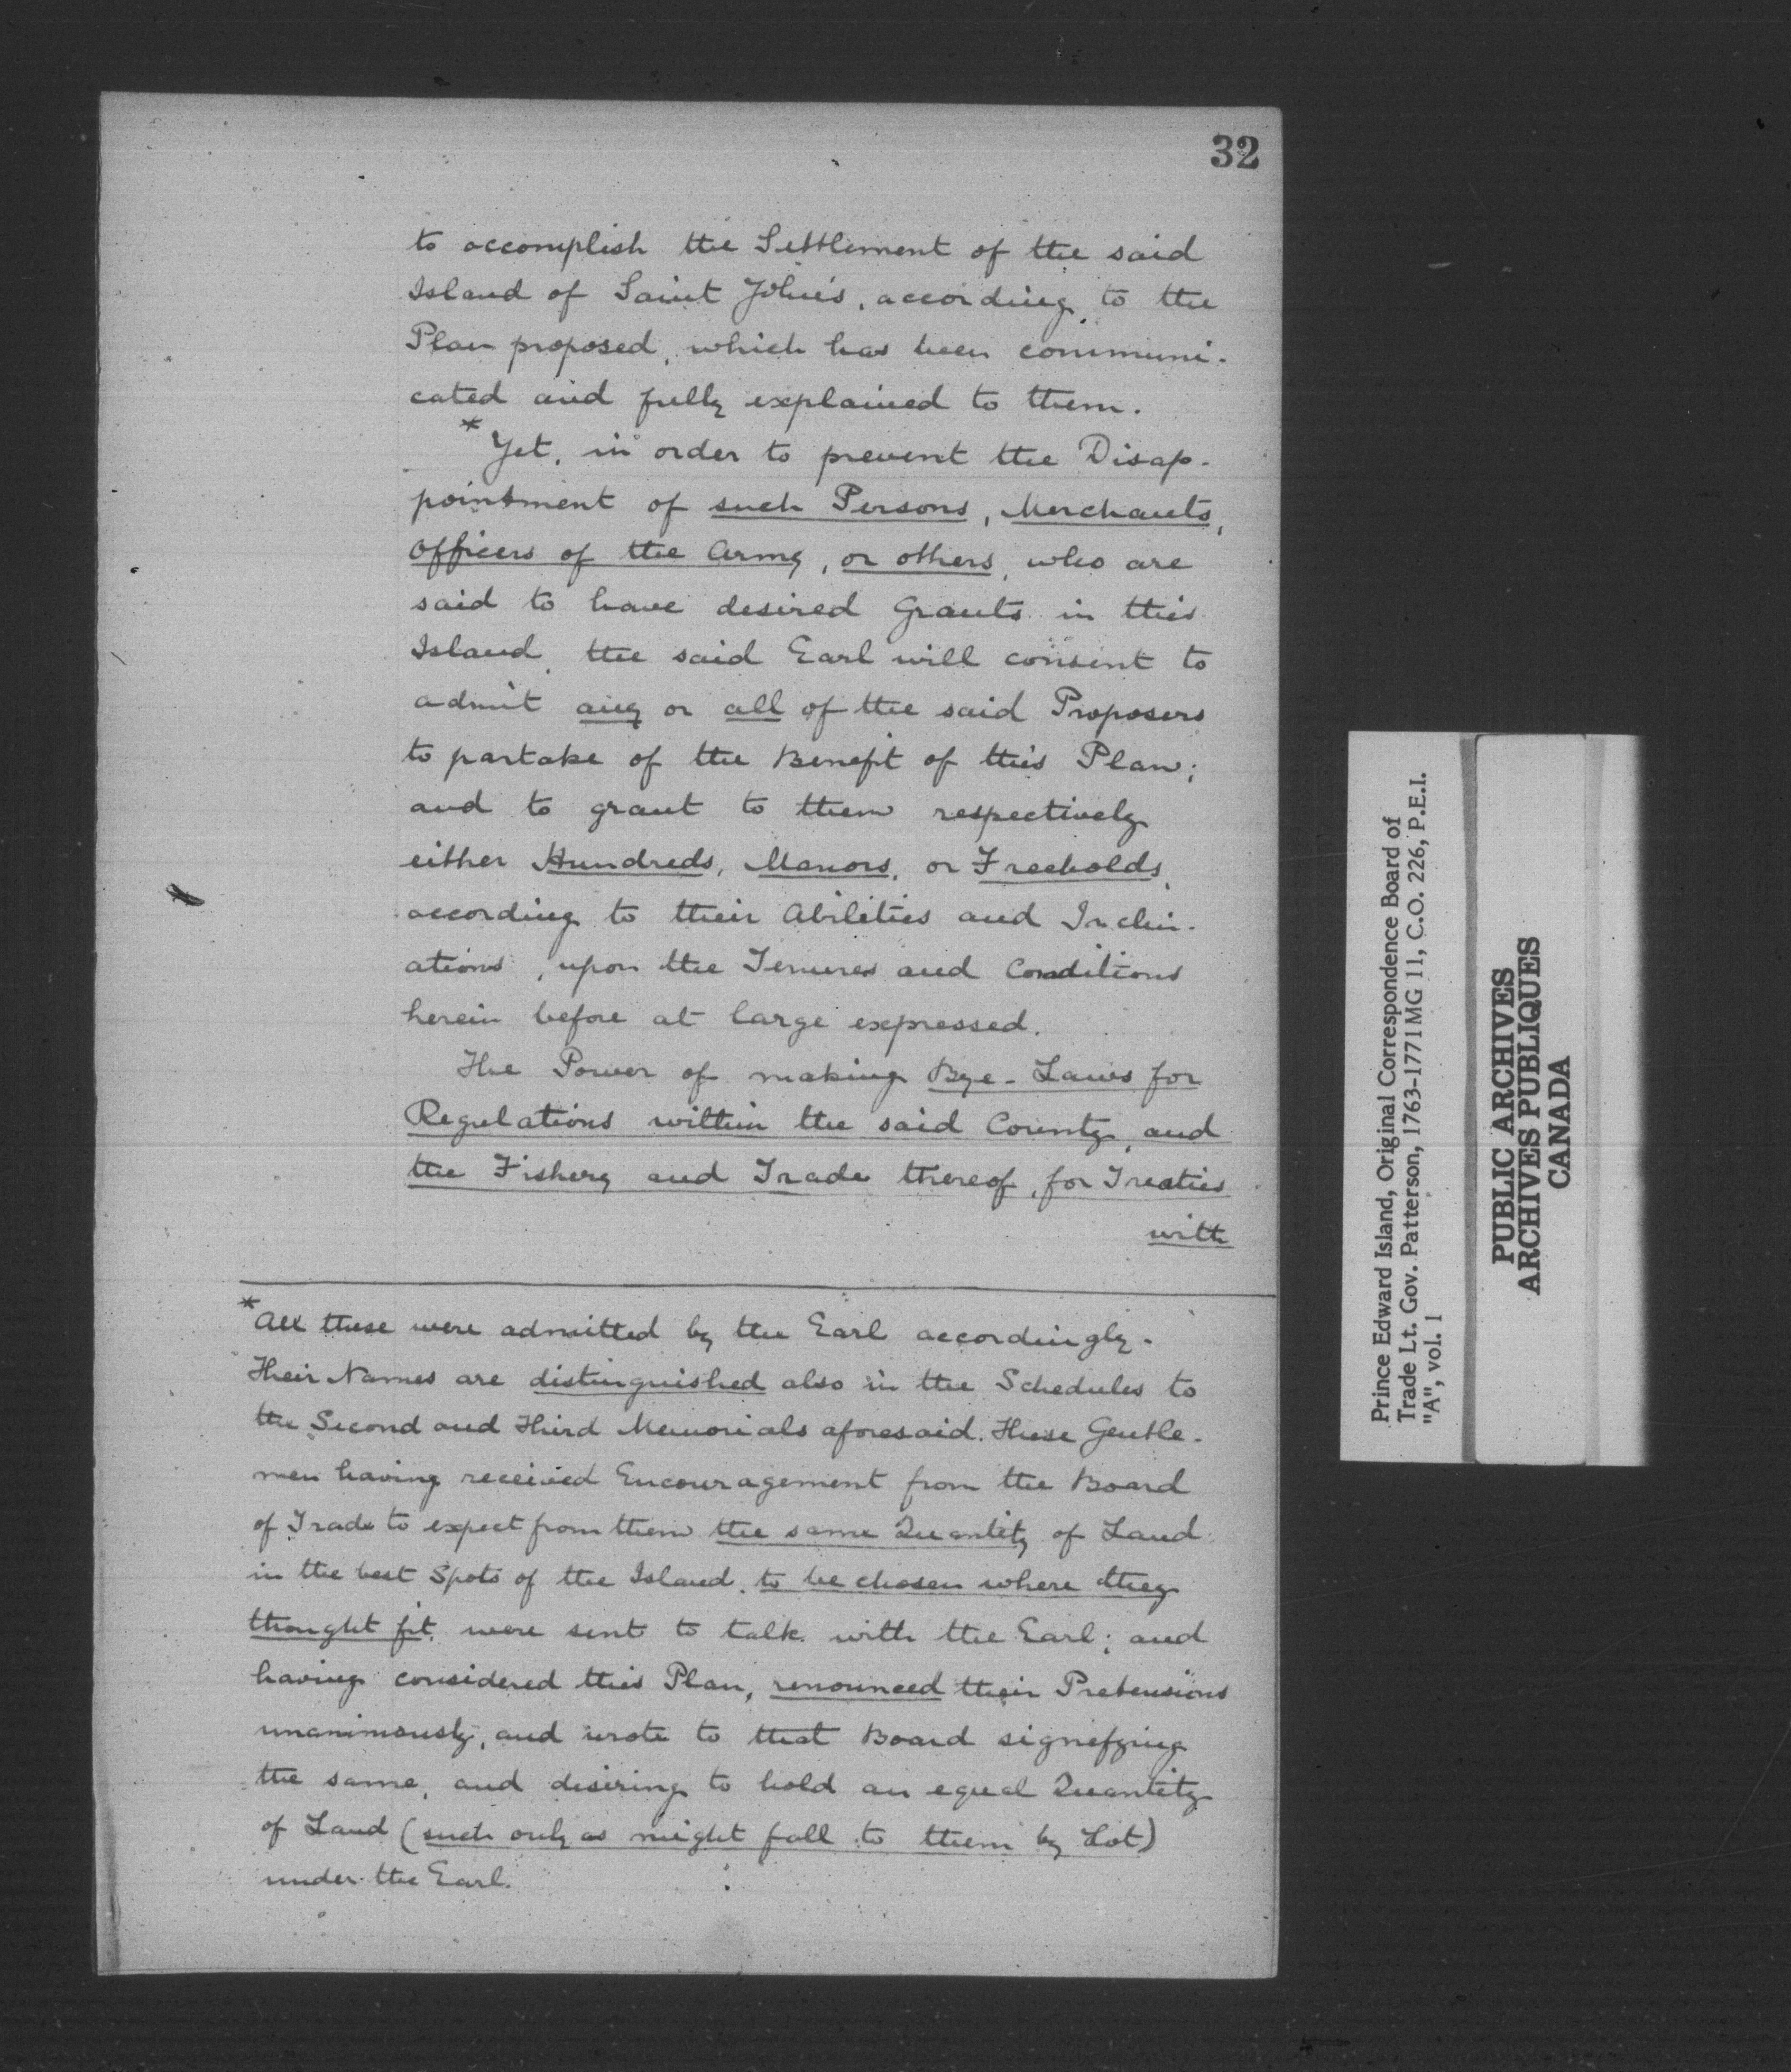 32
to accomplish the Settlement of the said
Island of Saint John's, according to the
Plan proposed, which has been communi-
cated and fully explained to them.
* Yet, in order to prevent the Disap-
pointment of such Persons, Merchants,
Officers of the Army, or others, who are
said to have desired Grants in this
Island, the said Earl will consent to
admit any or all of the said Proposers
to partake of the Benefit of this Plan;
and to grant to them respectively
either Hundreds, Manors, or Freeholds,
according to their Abilities and Inclin-
ations, upon the Tenures and Conditions
herein before at large expressed.
The Power of making Bye-Laws for
Regulations within the said County, and
the Fishery and Trade thereof, for Treaties
with
* All these were admitted by the Earl accordingly.
Their Names are distinguished also in the Schedules to
the Second and Third Memorials aforesaid. These Gentle-
men having received Encouragement from the Board
of Trade to expect from them the same Quantity of Land
in the best Spots of the Island, to be chosen where they
thought fit, were sent to talk with the Earl; and
having considered this Plan, renounced their Pretensions
unanimously, and wrote to that Board signefying
the same, and desiring to hold an equal Quantity
of Land (such only as might fall to them by Lot)
under the Earl.
Prince Edward Island, Original Correspondence Board of
Trade Lt. Gov. Patterson, 1763-1771 MG 11, C.O. 226, P.E.I.
"A", vol. 1
PUBLIC ARCHIVES
ARCHIVES PUBLIQUES
CANADA